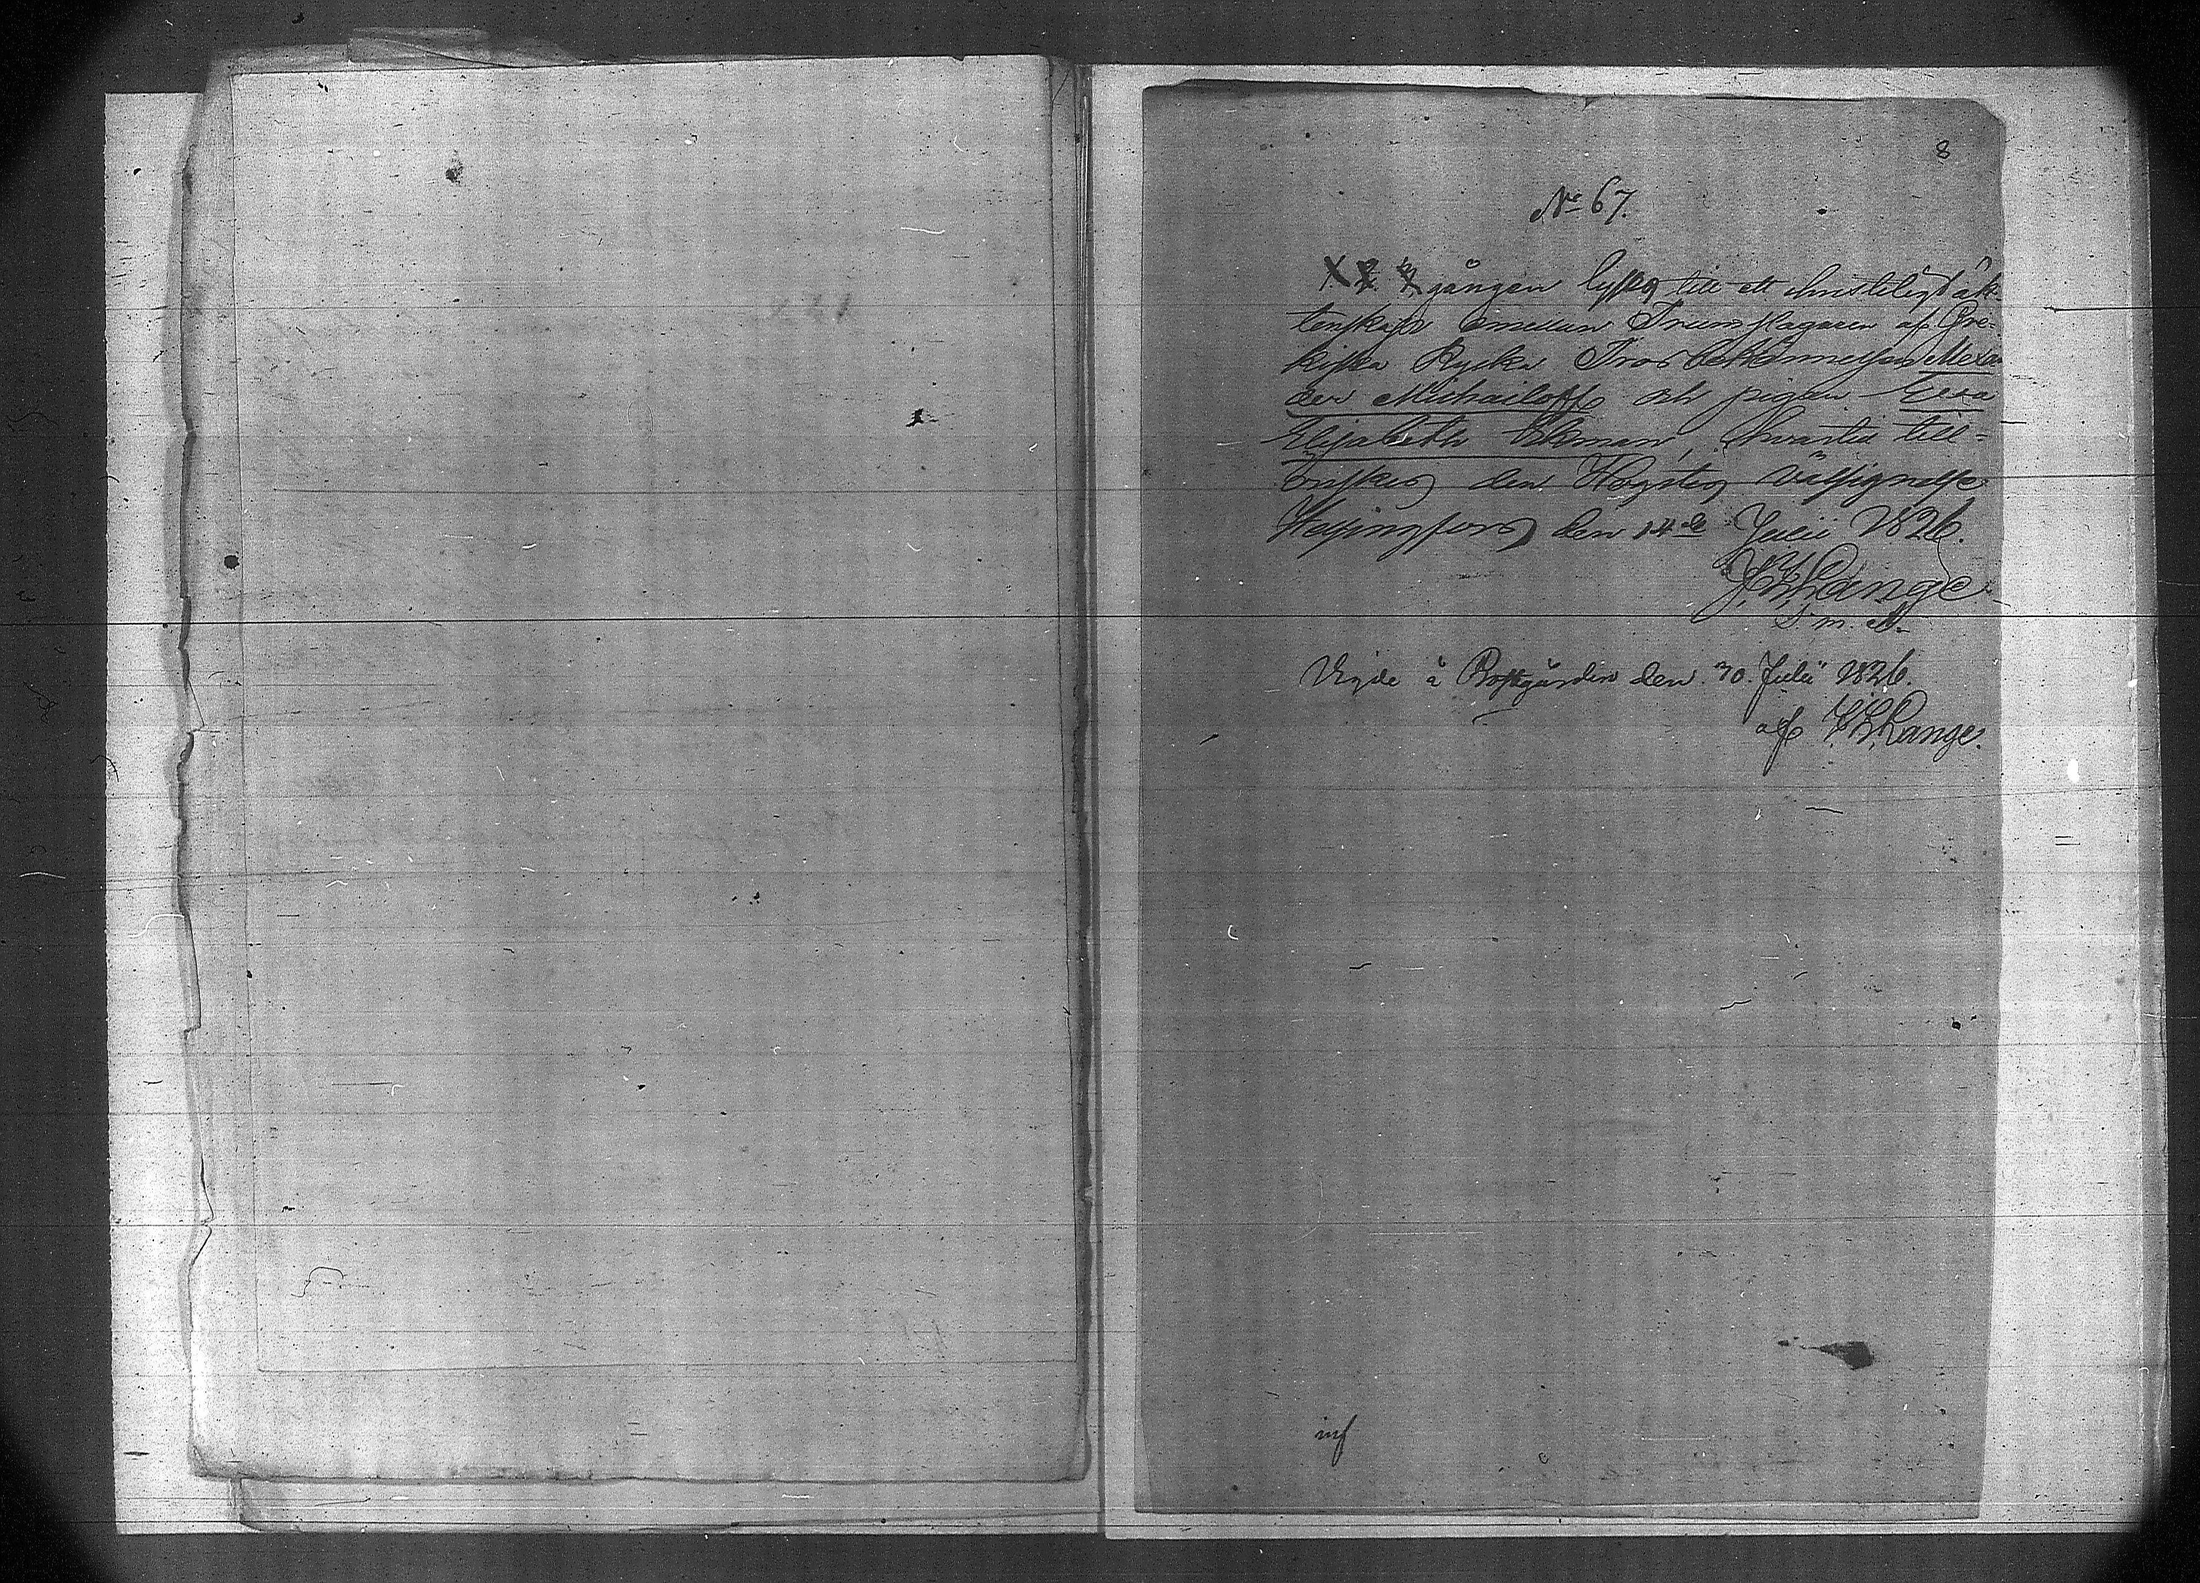 8
No 67.
gången lyses till ett christeligt äk-
tenskap emellan Trumslagaren af Gre-
kiska Kyrka Trosbekännelsen Alexan
der Michailoff och pigan Eva
Elisabeth Ekman, hvartill till-
önskes den Högstes välsignelse
Helsingfors den 14de Julii 1826.
Lange
Vigde å Bostgården den 30. Julii 1826.
af Lange.